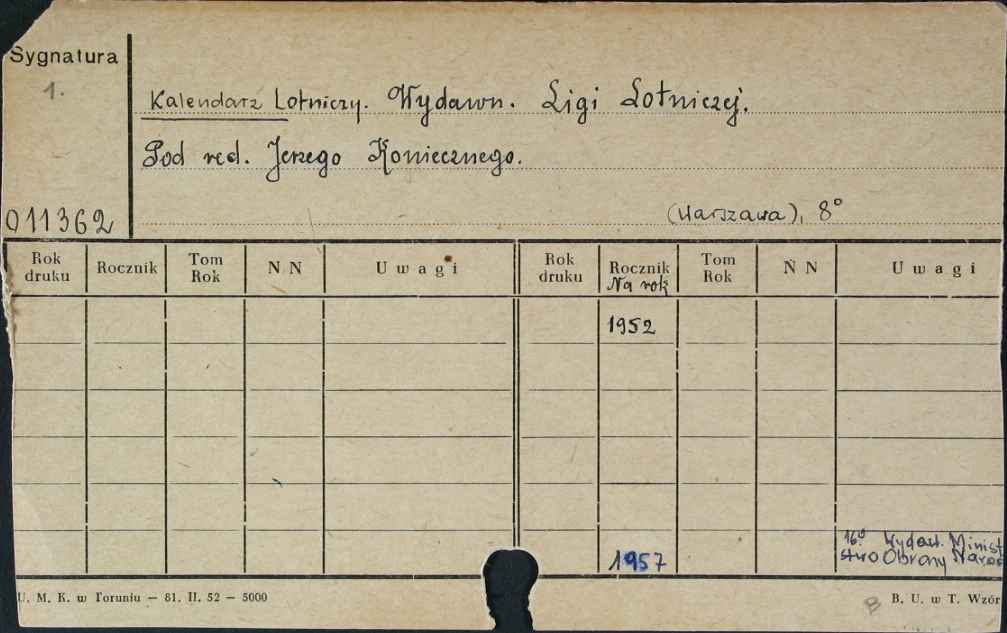 Sygnatura
1.
Kalendarz Lotniczy. Wydawn. Ligi Lotniczej.
Pod red. Jerzego Koniecznego.
011362
(Warszawa), 8°
Rok druku Rocznik Tom Rok N N U w a g i Rok druku Rocznik Tom Rok N N U w a g i
Na rok
1952
16° Wydaw. Minist
1957 stwo Obrony Narod
U. M. K. w Toruniu — 81. II. 52 — 5000 B B. U. w T. Wzór